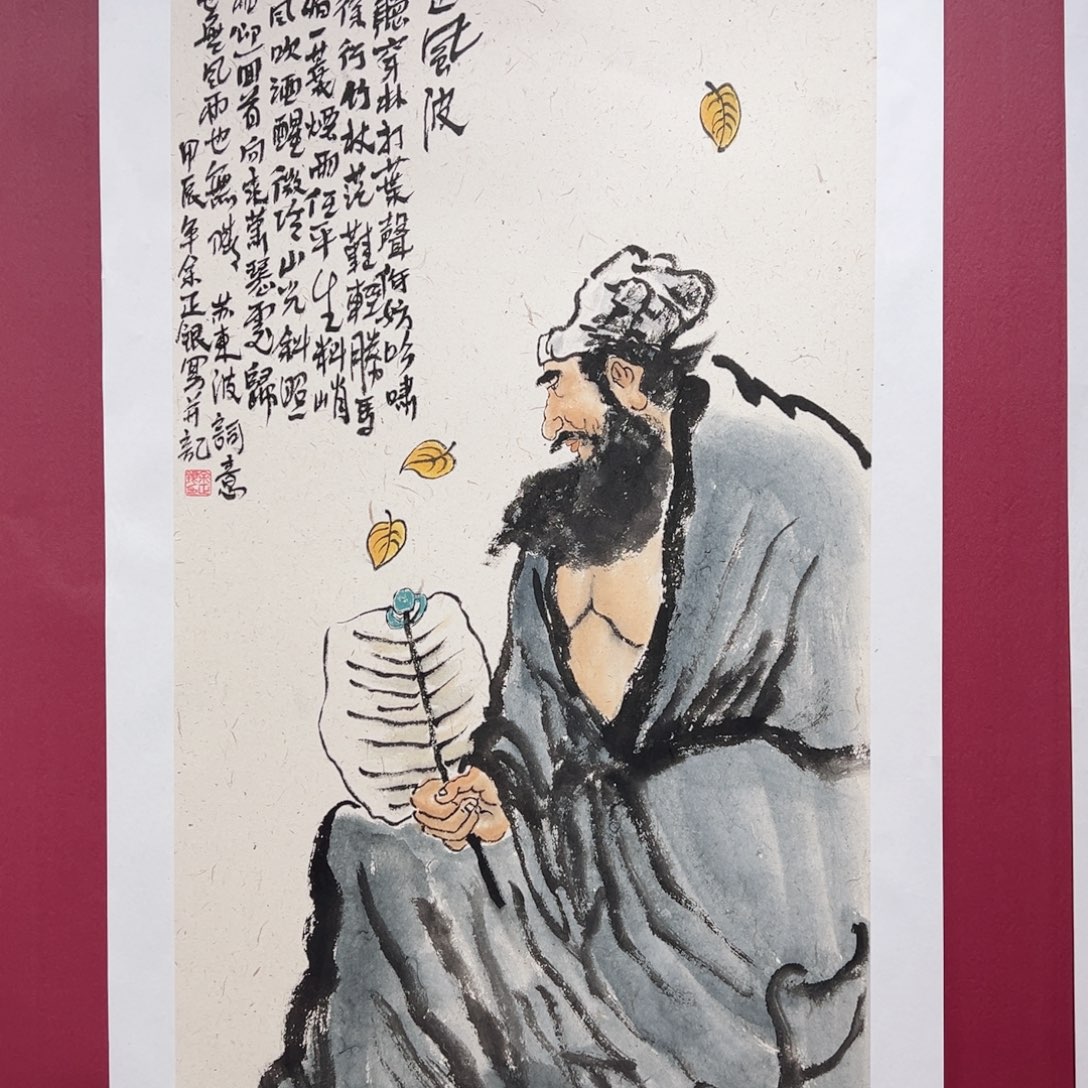 風波
聽穿林打葉聲何妨吟嘯
徐行竹杖芒鞋輕勝馬
怕一蓑煙雨任平生料峭
風吹酒醒微冷山光斜照
迎回首向來蕭瑟處歸
也無風雨也無晴 苏東坡詞意
甲辰年余正銀寫并記